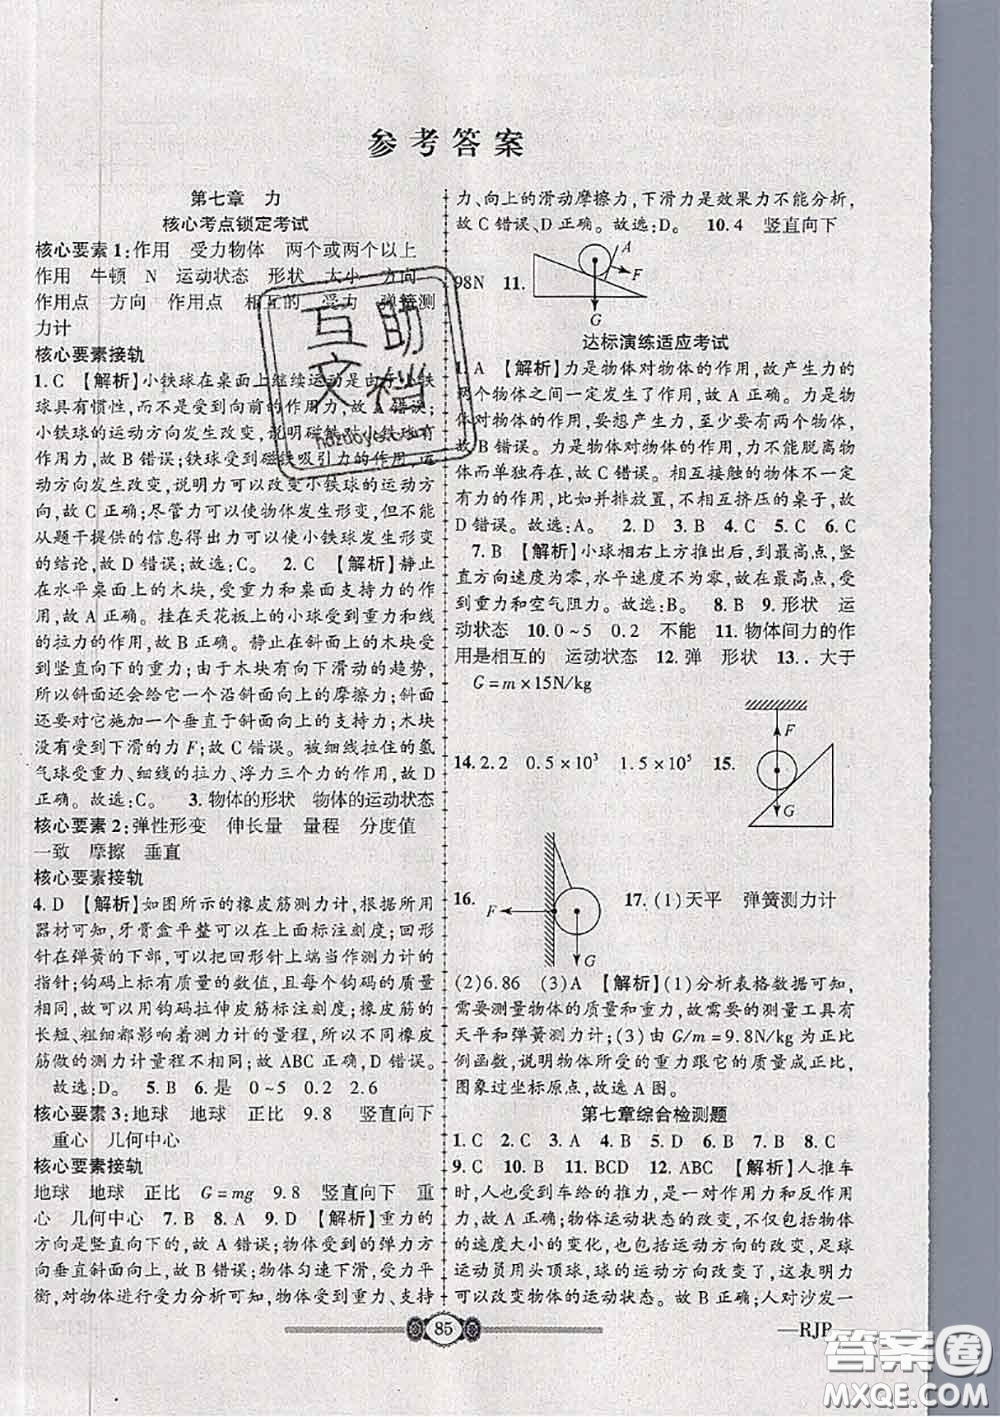 参考答案
第七章　力
核心考点锁定考试
核心要素1:作用　受力物体　两个或两个以上
作用　牛顿　N　运动状态　形状　大小　方向
作用点　方向　作用点　相互的　受力　弹簧测
力计
核心要素接轨
1.C　【解析】小铁球在桌面上继续运动是由于小铁
球具有惯性,而不是受到向前的作用力,故A错误;
小铁球的运动方向发生改变,说明磁铁对小铁球有
作用力,故B错误;铁球受到磁铁吸引力的作用,运
动方向发生改变,说明力可以改变小铁球的运动方
向,故C正确;尽管力可以使物体发生形变,但不能
从题干提供的信息得出力可以使小铁球发生形变
的结论,故D错误。故选:C。　2.C　【解析】静止
在水平桌面上的木块,受重力和桌面支持力的作
用,故A正确。挂在天花板上的小球受重力和线
的拉力的作用,故B正确。静止在斜面上的木块受
到竖直向下的重力;由于木块有向下滑动的趋势,
所以斜面还会给它一个沿斜面向上的摩擦力;斜面
还要对它施加一个垂直于斜面向上的支持力;木块
没有受到下滑的力F;故C错误。被细线拉住的氢
气球受重力、细线的拉力、浮力三个力的作用,故D
正确。故选:C。　3.物体的形状　物体的运动状态
核心要素2:弹性形变　伸长量　量程　分度值
一致　摩擦　垂直
核心要素接轨
4.D　【解析】如图所示的橡皮筋测力计,根据所用
器材可知,牙膏盒平整可以在上面标注刻度;回形
针在弹簧的下部,可以把回形针上端当作测力计的
指针;钩码上标有质量的数值,且每个钩码的质量
相同,故可以用钩码拉伸皮筋标注刻度;橡皮筋的
长短、粗细都影响着测力计的量程,所以不同橡皮
筋做的测力计量程不相同;故ABC正确,D错误。
故选:D。　5.B　6.是　0~5　0.2　2.6
核心要素3:地球　地球　正比　9.8　竖直向下
重心　几何中心
核心要素接轨
地球　地球　正比　G=mg　9.8　竖直向下　重
心　几何中心　7.B　8.A　9.D　【解析】重力的方
向是竖直向下的,故A错误;物体受到的弹力方向
向垂直斜面向上,故B错误;物体匀速下滑,受力平
衡,对物体进行受力分析可知,物体受到重力、支持
力、向上的滑动摩擦力,下滑力是效果力不能分析,
故C错误、D正确。故选:D。　10.4　竖直向下
98N　11.
A
F
G
达标演练适应考试
1.A　【解析】力是物体对物体的作用,故产生力的
两个物体之间一定发生了作用,故A正确。力是物
体对物体的作用,要想产生力,至少要有两个物体,
故B错误。力是物体对物体的作用,力不能脱离物
体而单独存在,故C错误。相互接触的物体不一定
有力的作用,比如并排放置,不相互挤压的桌子,故
D错误。故选:A。　2.D　3.B　4.C　5.C　6.C
7.B　【解析】小球相右上方推出后,到最高点,竖
直方向速度为零,水平速度不为零。故在最高点,
受到重力和空气阻力。故选:B。　8.B　9.形状　运
动状态　10.0~5　0.2　不能　11.物体间力的作
用是相互的　运动状态　12.弹　形状　13.．大于
G=m×15N/kg
14.2.2　0.5×10³　1.5×10⁵　15.
F
G
16.
F
G
17.(1)天平　弹簧测力计
(2)6.86　(3)A　【解析】(1)分析表格数据可知,
需要测量物体的质量和重力,故需要的测量工具有
天平和弹簧测力计;(3)由G/m=9.8N/kg为正比
例函数,说明物体所受的重力跟它的质量成正比,
图象过坐标原点,故选A图。
第七章综合检测题
1.C　2.C　3.A　4.B　5.D　6.D　7.B　8.C
9.C　10.B　11.BCD　12.CAD　【解析】人推车
时,人受到车给的推力,是一对作用力和反作用
力,故C正确;物体运动状态的改变,不仅包括物体
的速度大小的变化,也包括运动方向的改变,足球
运动员用头顶球,球的运动方向改变了,这表明力
可以改变物体的运动状态。故A正确;人对沙发一
85
—RJP
互助
文档
答案圈
MXQE.COM